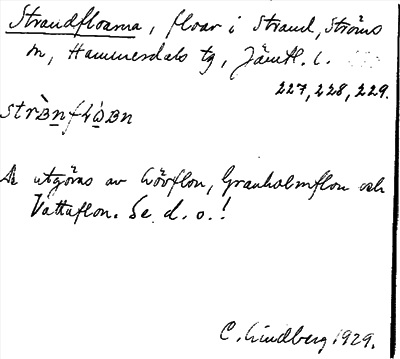 Strandfloarna, floar i Strand, Ströms
sn, Hammerdals tg, Jämtl. l.
227, 228, 229.
De utgöras av Lövflon, Granholmflon och
Vattuflon. Se d. o.!
C. Lindberg 1929.